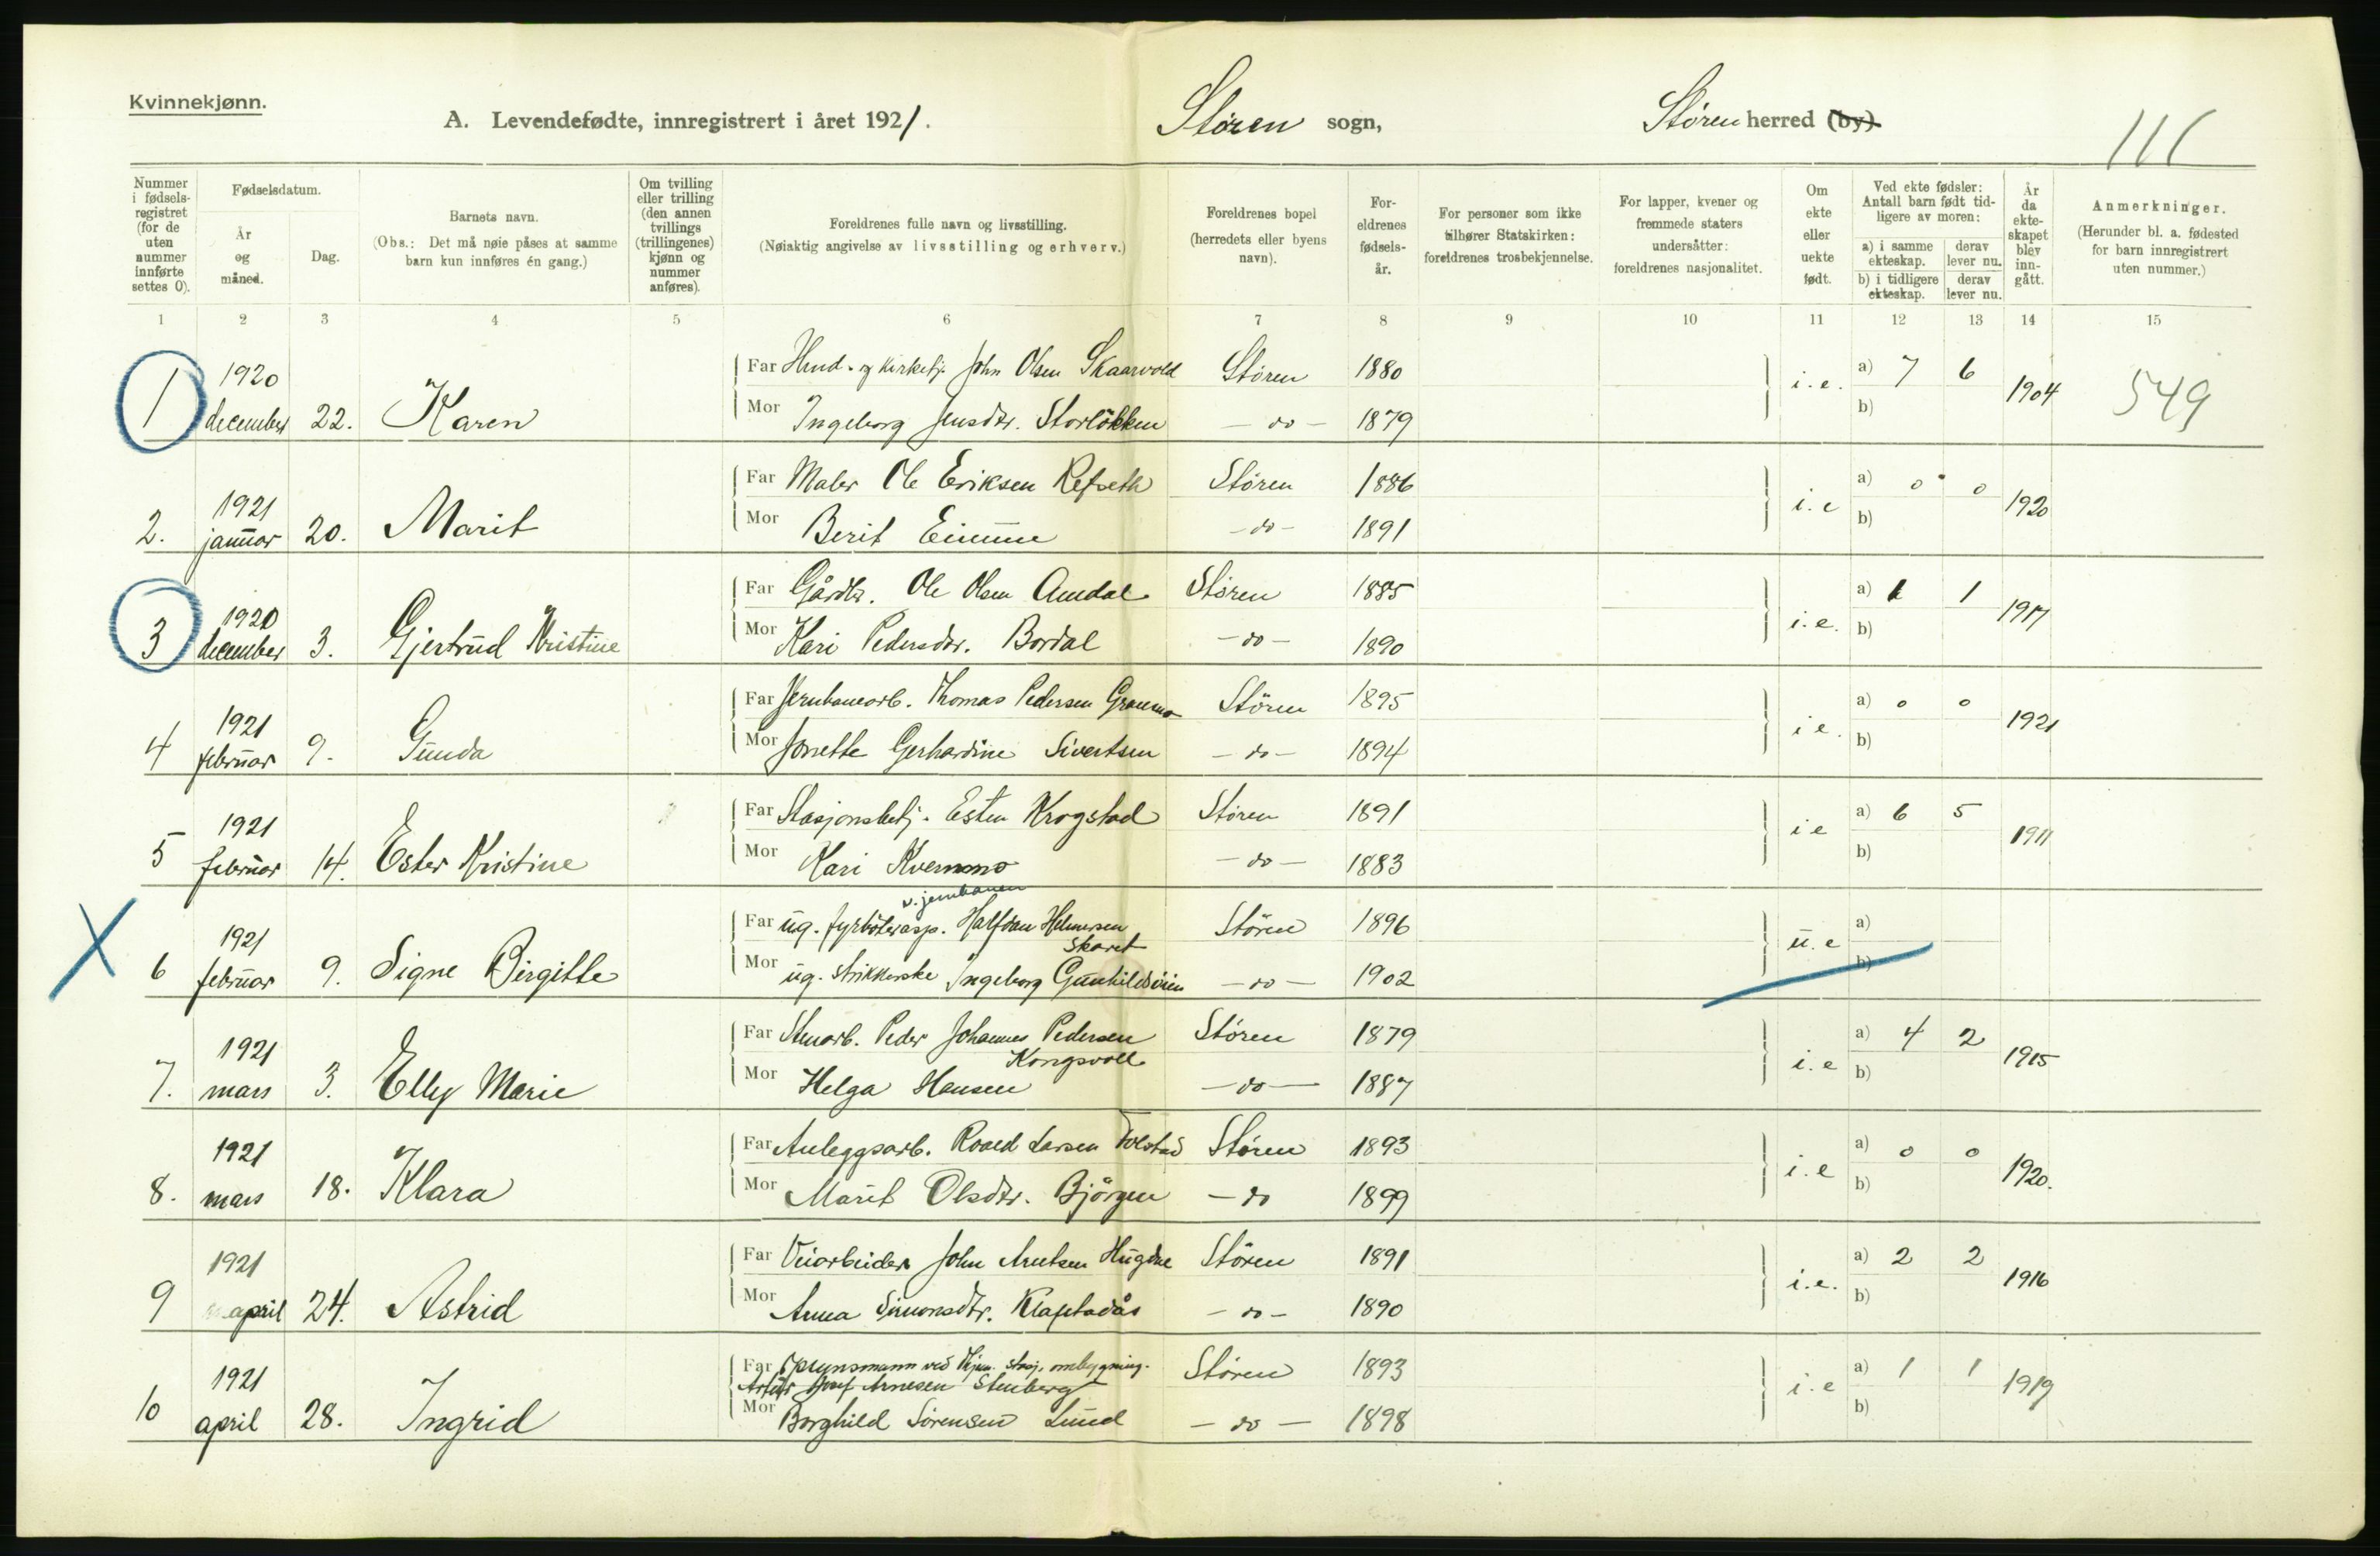 Kvinnekjønn.
A. Levendefødte, innregistrert i året 1921.
Støren sogn,
Støren herred (by)
111
Nummer i fødsels-registret (for de uten nummer innførte settes 0).
Fødselsdatum.
År og måned.
Dag.
Barnets navn.
(Obs.: Det må nøie påses at samme barn kun innføres én gang.)
Om tvilling eller trilling (den annen tvillings (trillingenes) kjønn og nummer anføres).
Foreldrenes fulle navn og livsstilling.
(Nøiaktig angivelse av livsstilling og erhverv.)
Foreldrenes bopel (herredets eller byens navn).
For-eldrenes fødsels-år.
For personer som ikke tilhører Statskirken: foreldrenes trosbekjennelse.
For lapper, kvener og fremmede staters undersåtter: foreldrenes nasjonalitet.
Om ekte eller uekte født.
Ved ekte fødsler: Antall barn født tid-ligere av moren:
a) i samme ekteskap. derav lever nu.
b) i tidligere ekteskap. derav lever nu.
År da ekte-skapet blev inn-gått.
Anmerkninger.
(Herunder bl. a. fødested for barn innregistrert uten nummer.)
1 2 3 4 5 6 7 8 9 10 11 12 13 14 15
1 1920 december 22. Karen
Far John Olsen Skaarvold Støren 1880 i.e. a) 7 6 1904 549
Mor Ingeborg Jensdtr. Storløkken - do - 1879 b)
2. 1921 januar 20. Marit
Far Maler Ole Eriksen Refseth Støren 1886 i.e a) 0 0 1920
Mor Berit - do - 1891 b)
3 1920 december 3. Gjertrud Kristine
Far Gårdbr. Ole Olsen Amdal Støren 1885 i.e. a) 1 1 1917
Mor Kari Pedersdtr. Bordal - do - 1890 b)
4 1921 februar 9. Gunda
Far Jernbanearb. Thomas Pedersen Granmo Støren 1895 i e. a) 0 0 1921
Mor Jonette Gerhardine Sivertsen - do - 1894 b)
5 1921 februar 14. Ester Kristine
Far Stasjonsbetj. Esten Krogstad Støren 1891 i e a) 6 5 1911
Mor Kari Kvernmo - do - 1883 b)
v. jernbanen
6 1921 februar 9. Signe Birgitte
Far ug. fyrbøterasp. Halfdan Helmersen Skaret Støren 1896 u.e a)
Mor ug. strikkerske Ingeborg Gunhildsøien - do - 1902 b)
7. 1921 mars 3. Elly Marie
Far Stenarb. Peder Johannes Pedersen Kongsvoll Støren 1879 i.e a) 4 2 1915
Mor Helga Hansen - do - 1887 b)
8. 1921 mars 18. Klara
Far Anleggsarb. Roald Larsen Folstad Støren 1893 i.e a) 0 0 1920.
Mor Marit Olsdtr. Bjørgen - do 1899 b)
9 1921 april 24. Astrid
Far Veiarbeider John Arntsen Hugdal Støren 1891 i.e. a) 2 2 1916
Mor Anna Simonsdtr. - do - 1890 b)
10 1921 april 28. Ingrid
Far ved stasj. ombygning.
Artur Josef Arnesen Stenberg Støren 1893 i.e a) 1 1 1919
Mor Borghild Sørensen Lund - do - 1898 b)